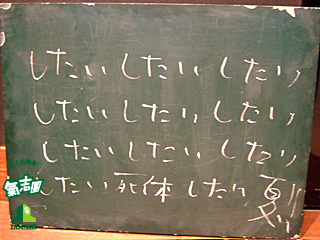 したい したい したい
したい したい したい
したい したい したい
したい 死体 したい 夏!!
氣志團